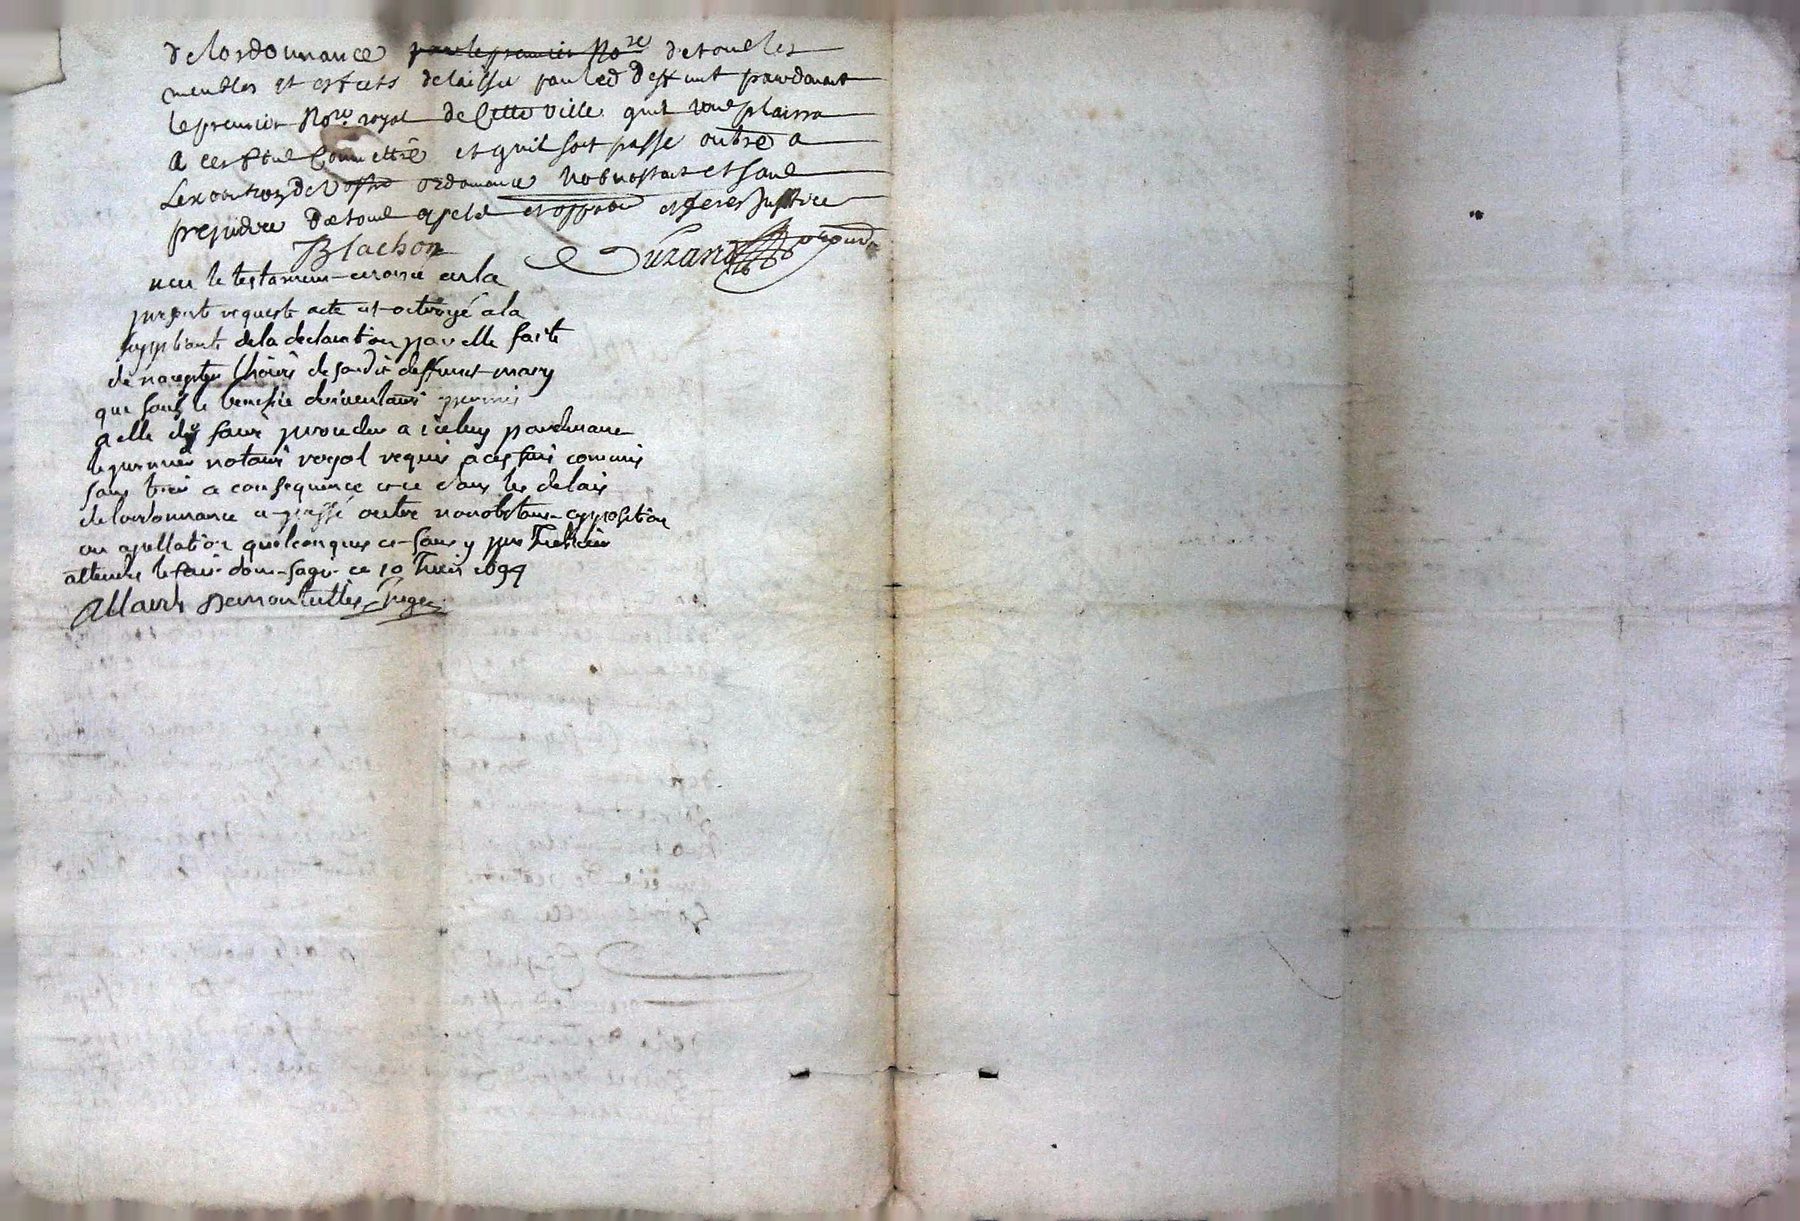 de lordonnance par le premier No.re de tous les
meubles et effects delaissés par led deffunt pardevant
le premier No.re royal de cette ville quil vous plaira
a cest effet commettre et quil soit passé outre a
Lexecution de vostre ordonnance nobnostant et sans
prejudice de tous apels et oppoon et feres Justice
Blachon Duranc procur
veu le testament enoncé en la
presente requeste acte est octroyé a la
suppliante de la déclaration par elle faite
de naccepter lhoirie de sondit deffunct mary
que soubs le benefice dinventaire permis
a elle dy faire proceder a iceluy pardevant
le premier notaire royal requis a ces fins commis
sans tirer a consequence et ce dans les delais
de lordonnance a passé outre nonobstant opposition
ou apellation quelconques et sans y prejudicier
attendu le fait dont sagit ce 10 1694
Allard juge